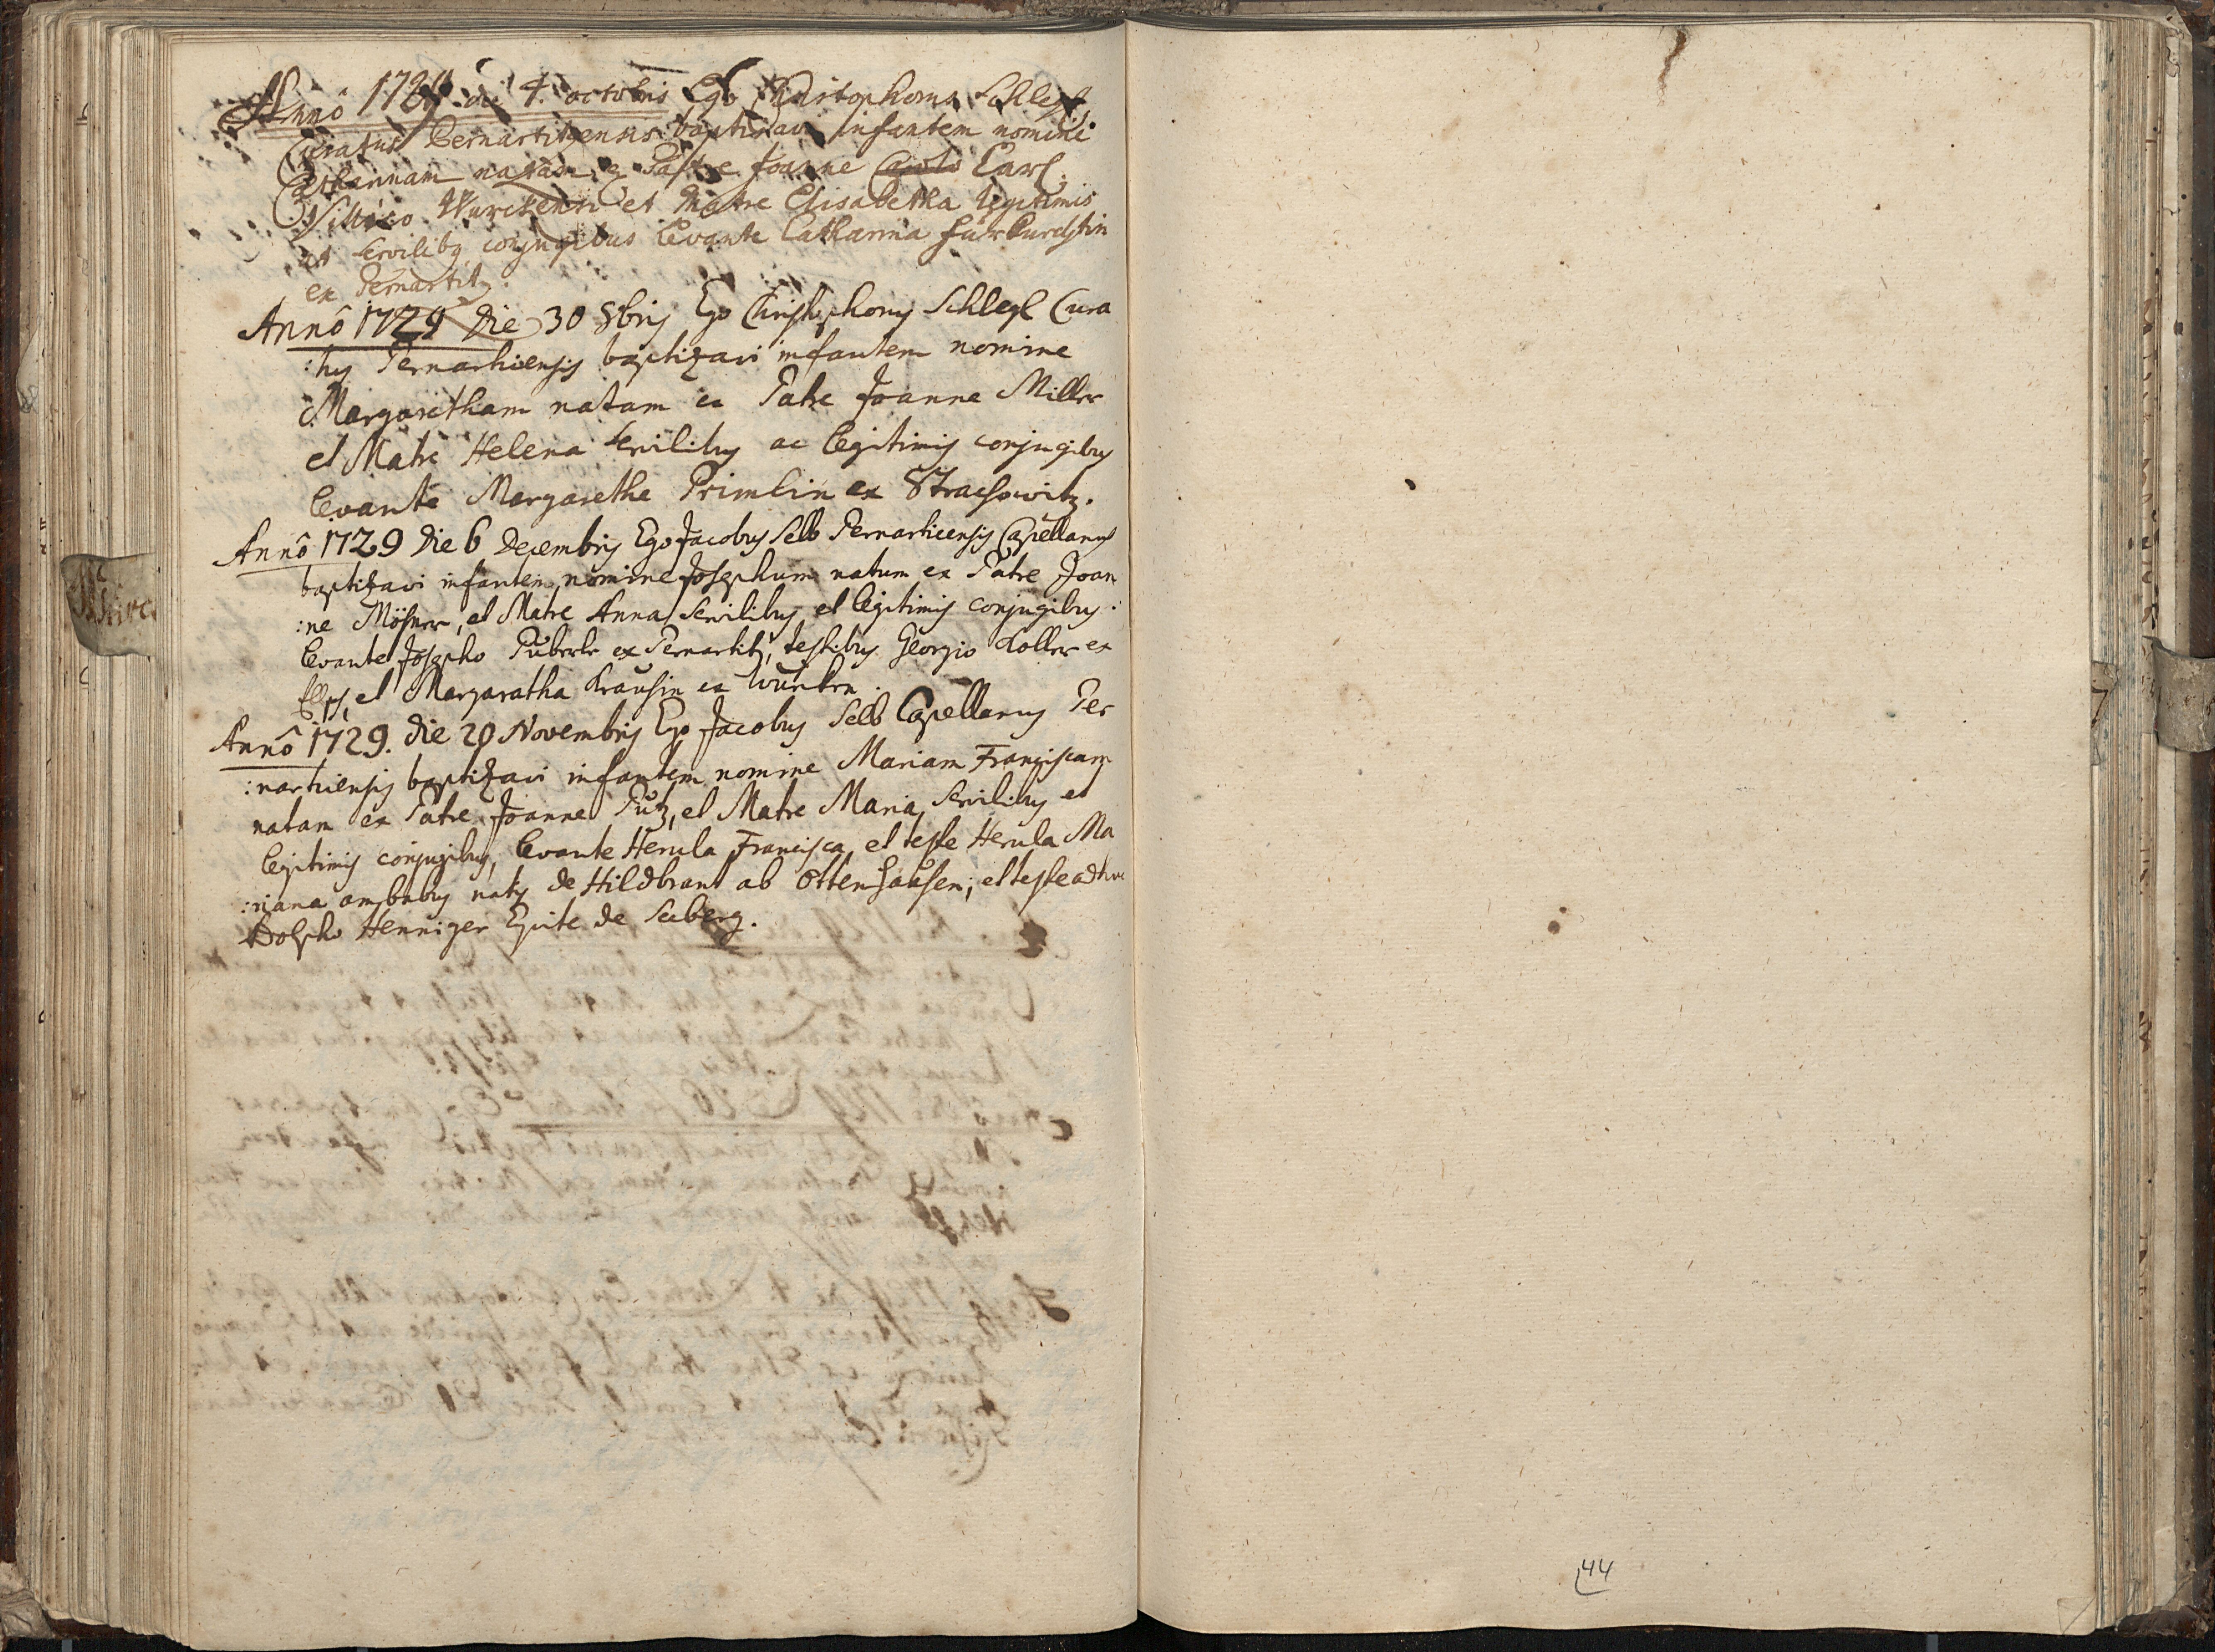 Annô 1729 die 4. octobris Ego Christophorus Schlegl
Curatus Bernartitzensis baptizavi infantem nomine
Catharinam natam ex Patre Joanne Carl
Villico Wurckensi et Matre Elisabetha legitimis
et servilibq conjugibus levante Catharina
ex Pernartitz.
Annô 1729 Die 30 8bris Ego Christophorus Schlegl Cura
:tus Pernarticensis baptizavi infantem nomine
Margaretham natam ex Patre Joanne Miller
et Matre Helena servilibus ac legitimis conjugibus
levante Margaretha Primlin ex Strachowitz.
Annô 1729 Die 6 Decembris Ego Jacobus Selb Pernarticensis Capellanus
baptizavi infantem nomine Josephum natum ex Patre Joan
:ne Mösner, et Matre Anna, servilibus et legitimis conjugibus:
levante Josepho Püberle ex Pernartitz, testibus Georgio Koller ex
et Margaratha Krausin ex Wurken.
Annô 1729. Die 20 Novembris Ego Jacobus Selb Capellanus Per
:narticensis baptizavi infantem nomine Mariam Franciscam
natam ex Patre Joanne Putz, et Matre Maria, servilibus et
legitimis conjugibus, levante Herula Francisca, et teste Herula Ma
:riana ambabus natis de Hildbrant ab Ottenhausen; et teste adhuc
Adolpho Henniger Equite de Seeberg.
44